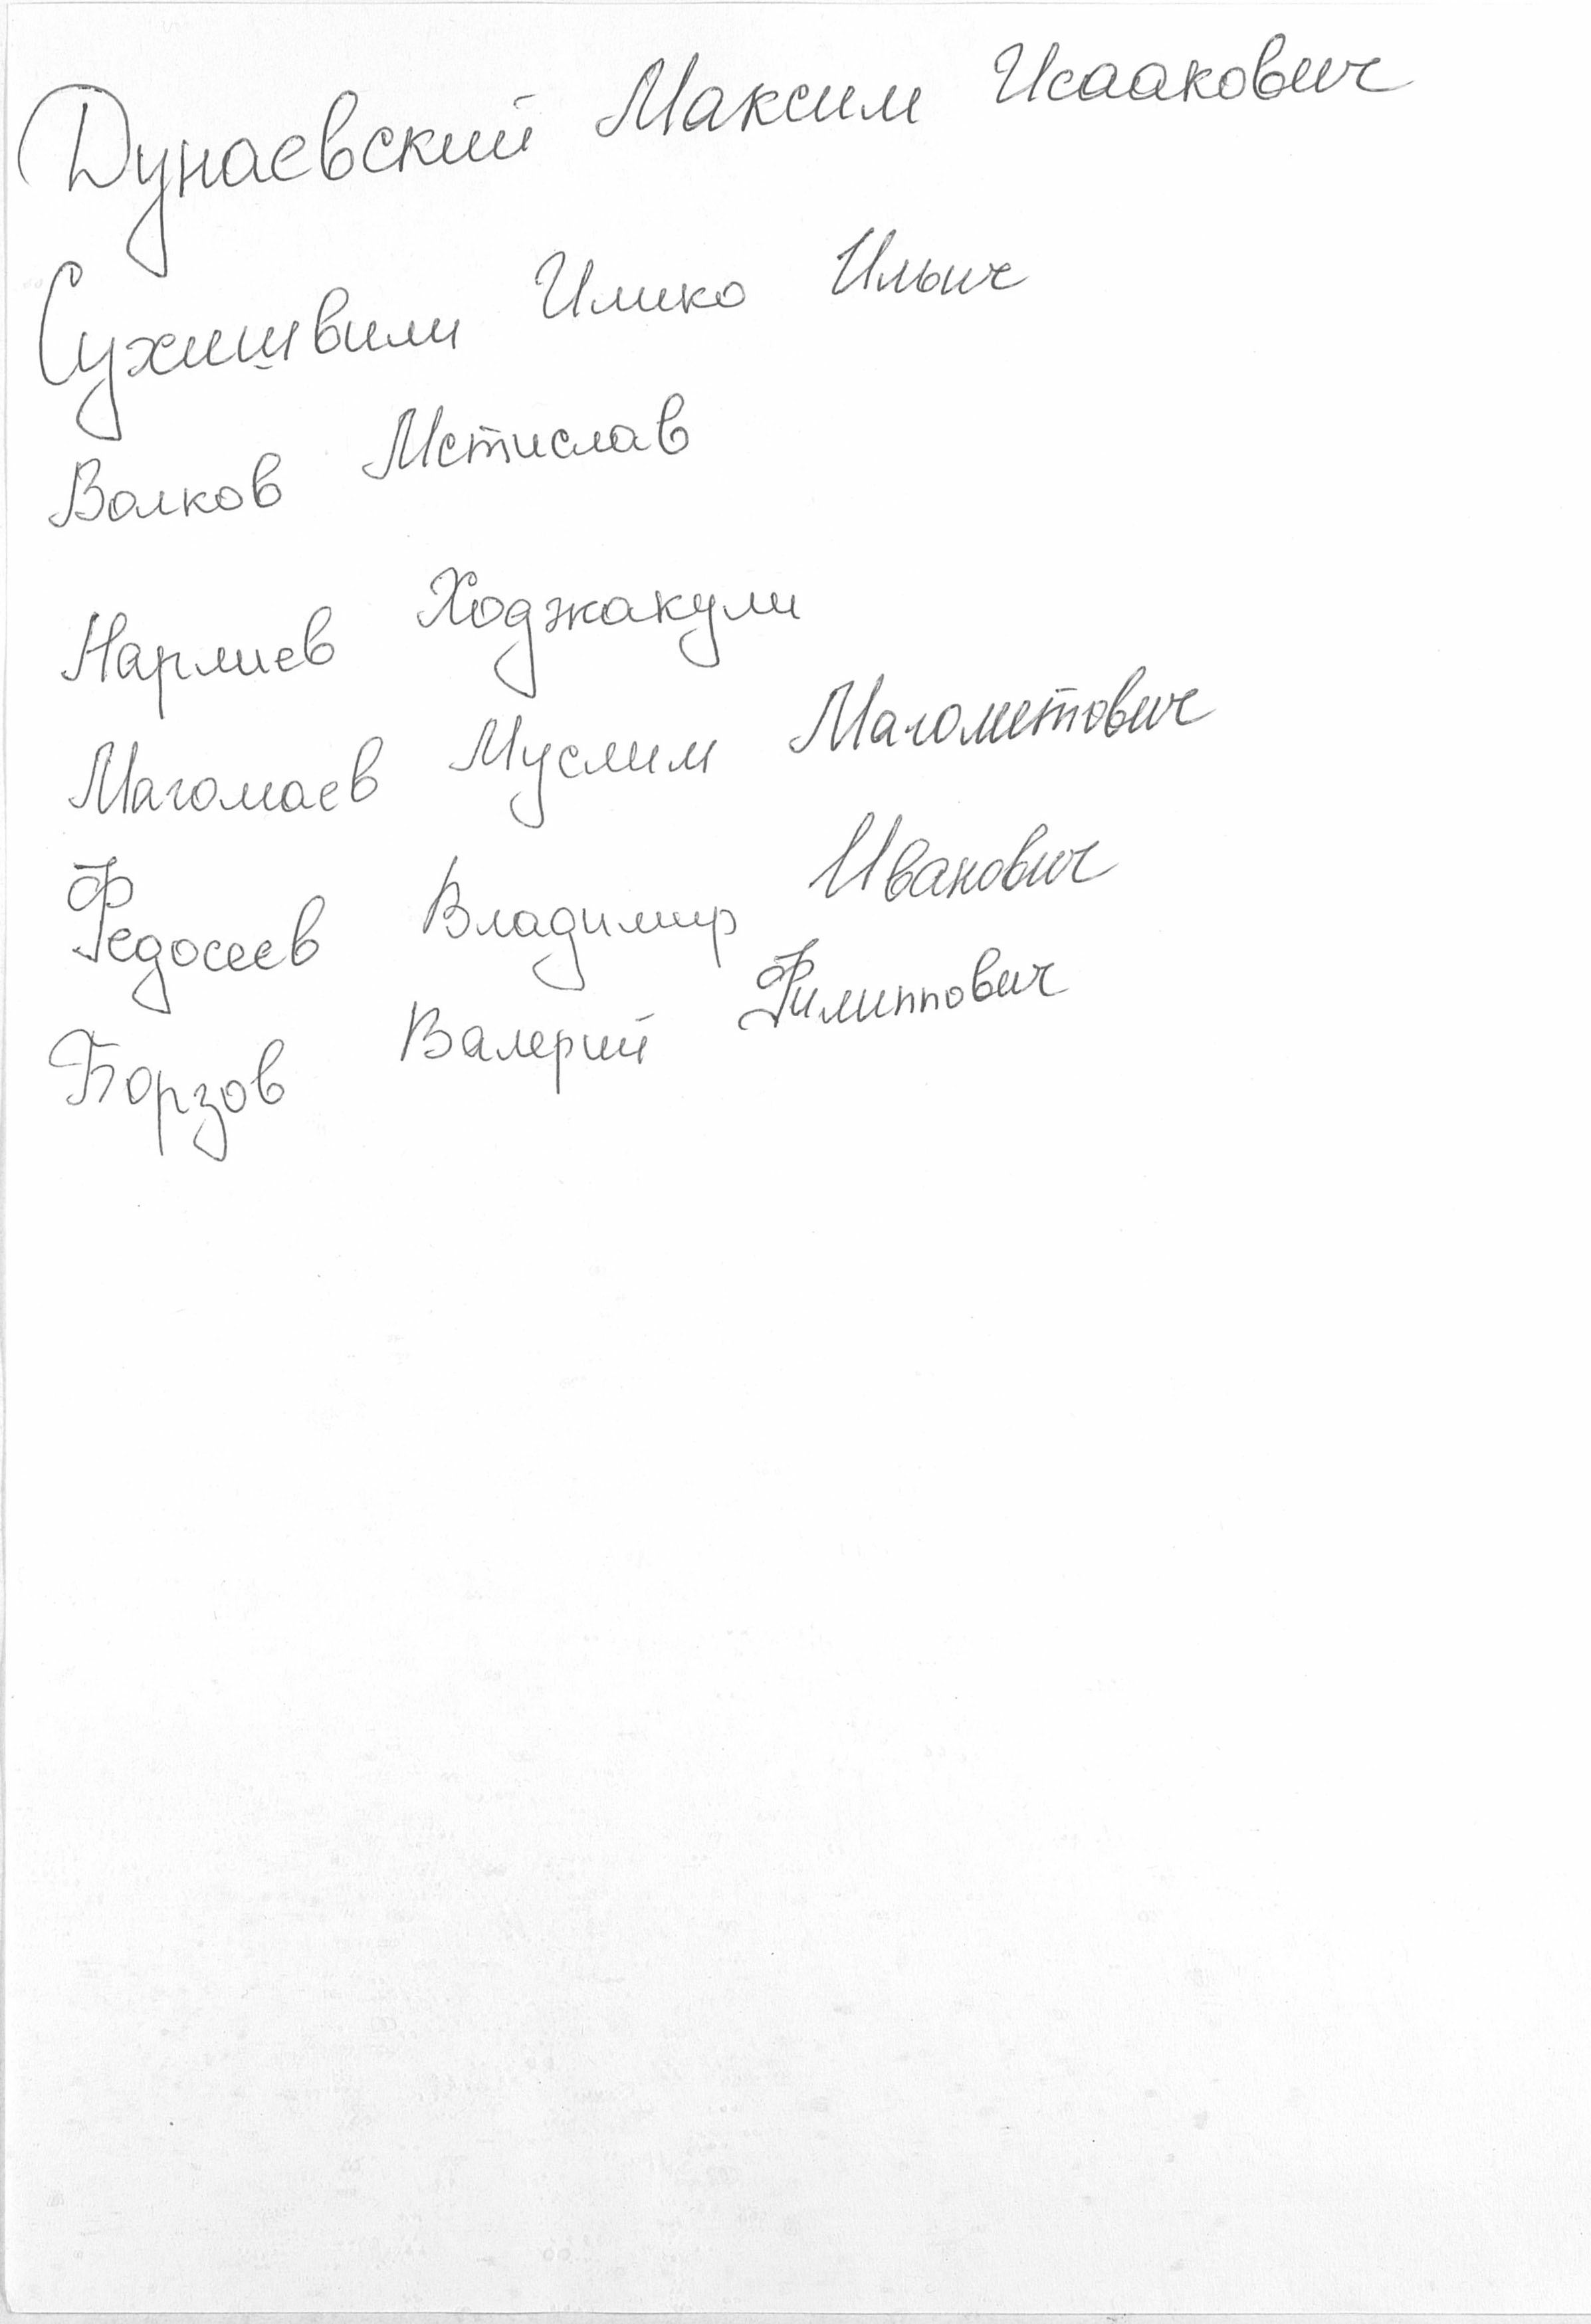 Дунаевский Максим Исаакович
Сухишвили Илико Ильич
Волков Мстислав
Нарлиев Ходжакули
Магомаев Муслим Магометович
Федосеев Владимир Иванович
Борзов Валерий Филиппович